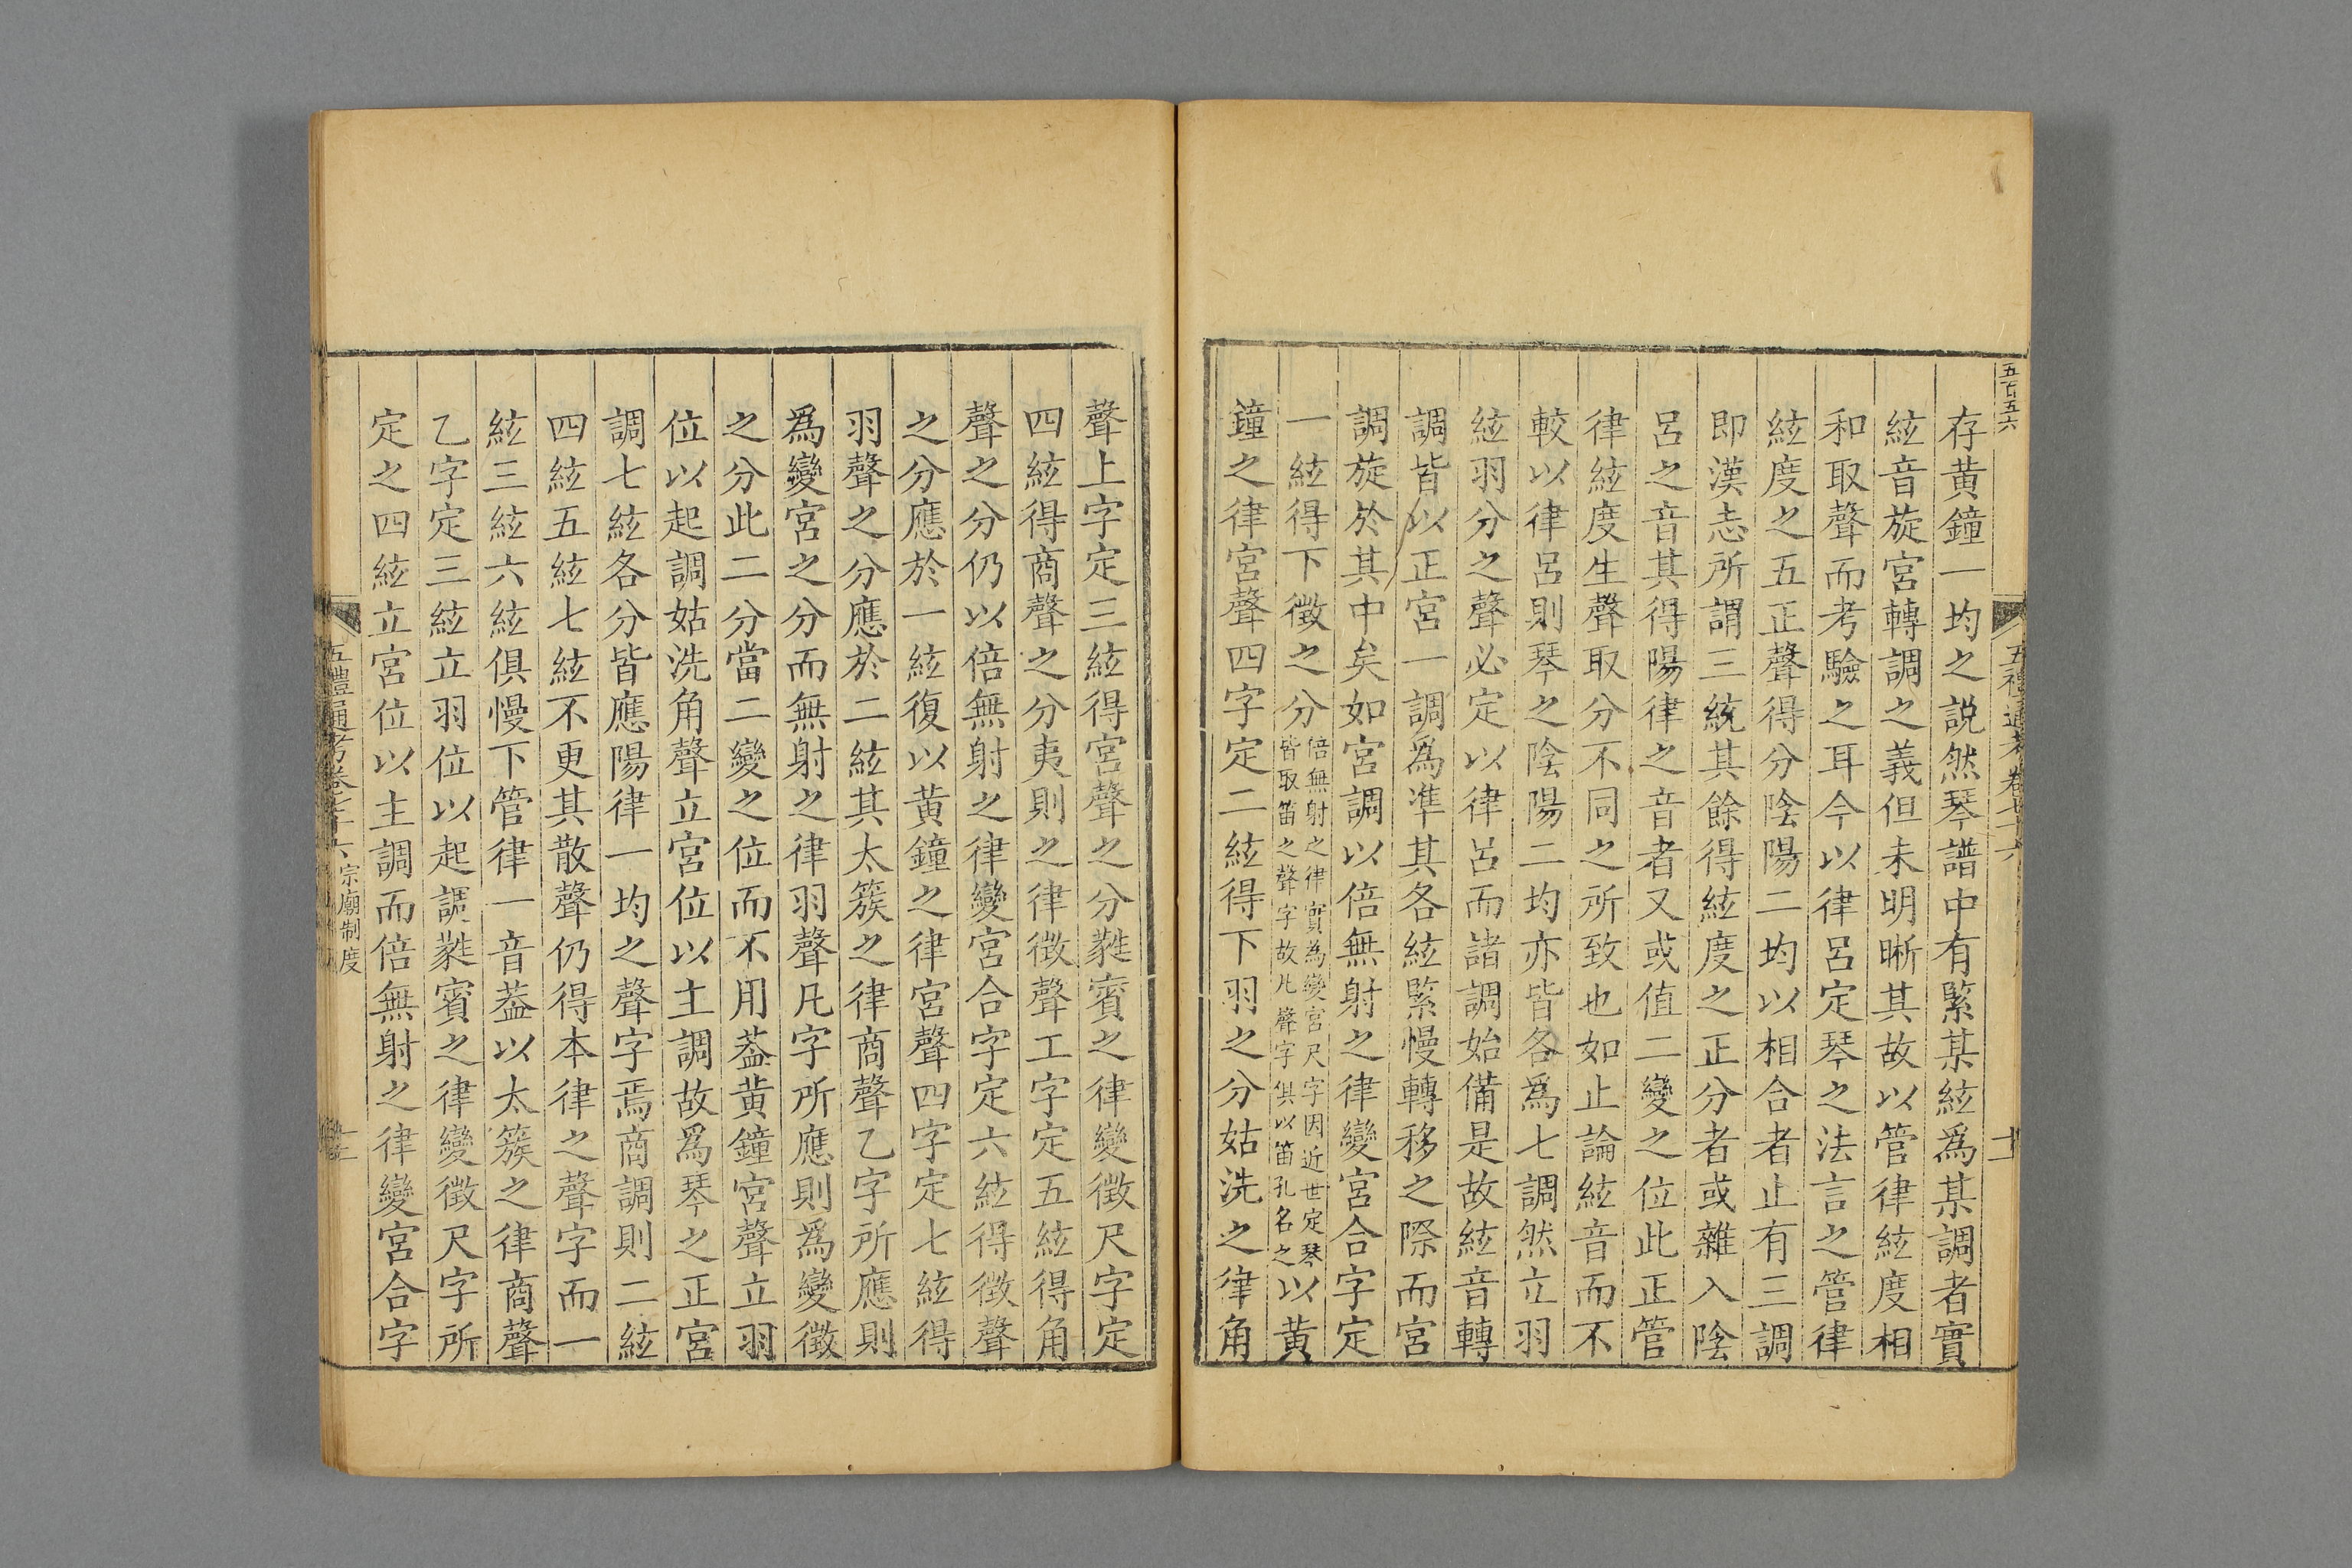 五百五六
五禮通考卷七十六
十一
存黄鐘一均之説然琴譜中有緊某絃爲某調者實
絃音旋宮轉調之義但未明晰其故以管律絃度相
和取聲而考驗之耳今以律呂定琴之法言之管律
絃度之五正聲得分陰陽二均以相合者止有三調
即漢志所謂三統其餘得絃度之正分者或雜入陰
呂之音其得陽律之音者又或值二變之位此正管
律絃度生聲取分不同之所致也如止論絃音而不
較以律呂則琴之陰陽二均亦皆各爲七調然立羽
絃羽分之聲必定以律呂而諸調始備是故絃音轉
調皆以正宮一調爲準其各絃緊慢轉移之際而宮
調旋於其中矣如宮調以倍無射之律變宮合字定
一絃得下徵之分
倍無射之律實爲變宮尺字因近世定琴
皆取笛之聲字故凡聲字俱以笛孔名之
以黄
鐘之律宮聲四字定二絃得下羽之分姑洗之律角
聲上字定三絃得宮聲之分蕤賓之律變徵尺字定
四絃得商聲之分夷則之律徵聲工字定五絃得角
聲之分仍以倍無射之律變宮合字定六絃得徵聲
之分應於一絃復以黄鐘之律宮聲四字定七絃得
羽聲之分應於二絃其太簇之律商聲乙字所應則
爲變宮之分而無射之律羽聲凡字所應則爲變徵
之分此二分當二變之位而不用葢黄鐘宮聲立羽
位以起調姑洗角聲立宮位以主調故爲琴之正宮
調七絃各分皆應陽律一均之聲字焉商調則二絃
四絃五絃七絃不更其散聲仍得本律之聲字而一
絃三絃六絃俱慢下管律一音葢以太簇之律商聲
乙字定三絃立羽位以起調蕤賓之律變徵尺字所
定之四絃立宮位以主調而倍無射之律變宮合字
五禮通考卷七十六
宗廟制度